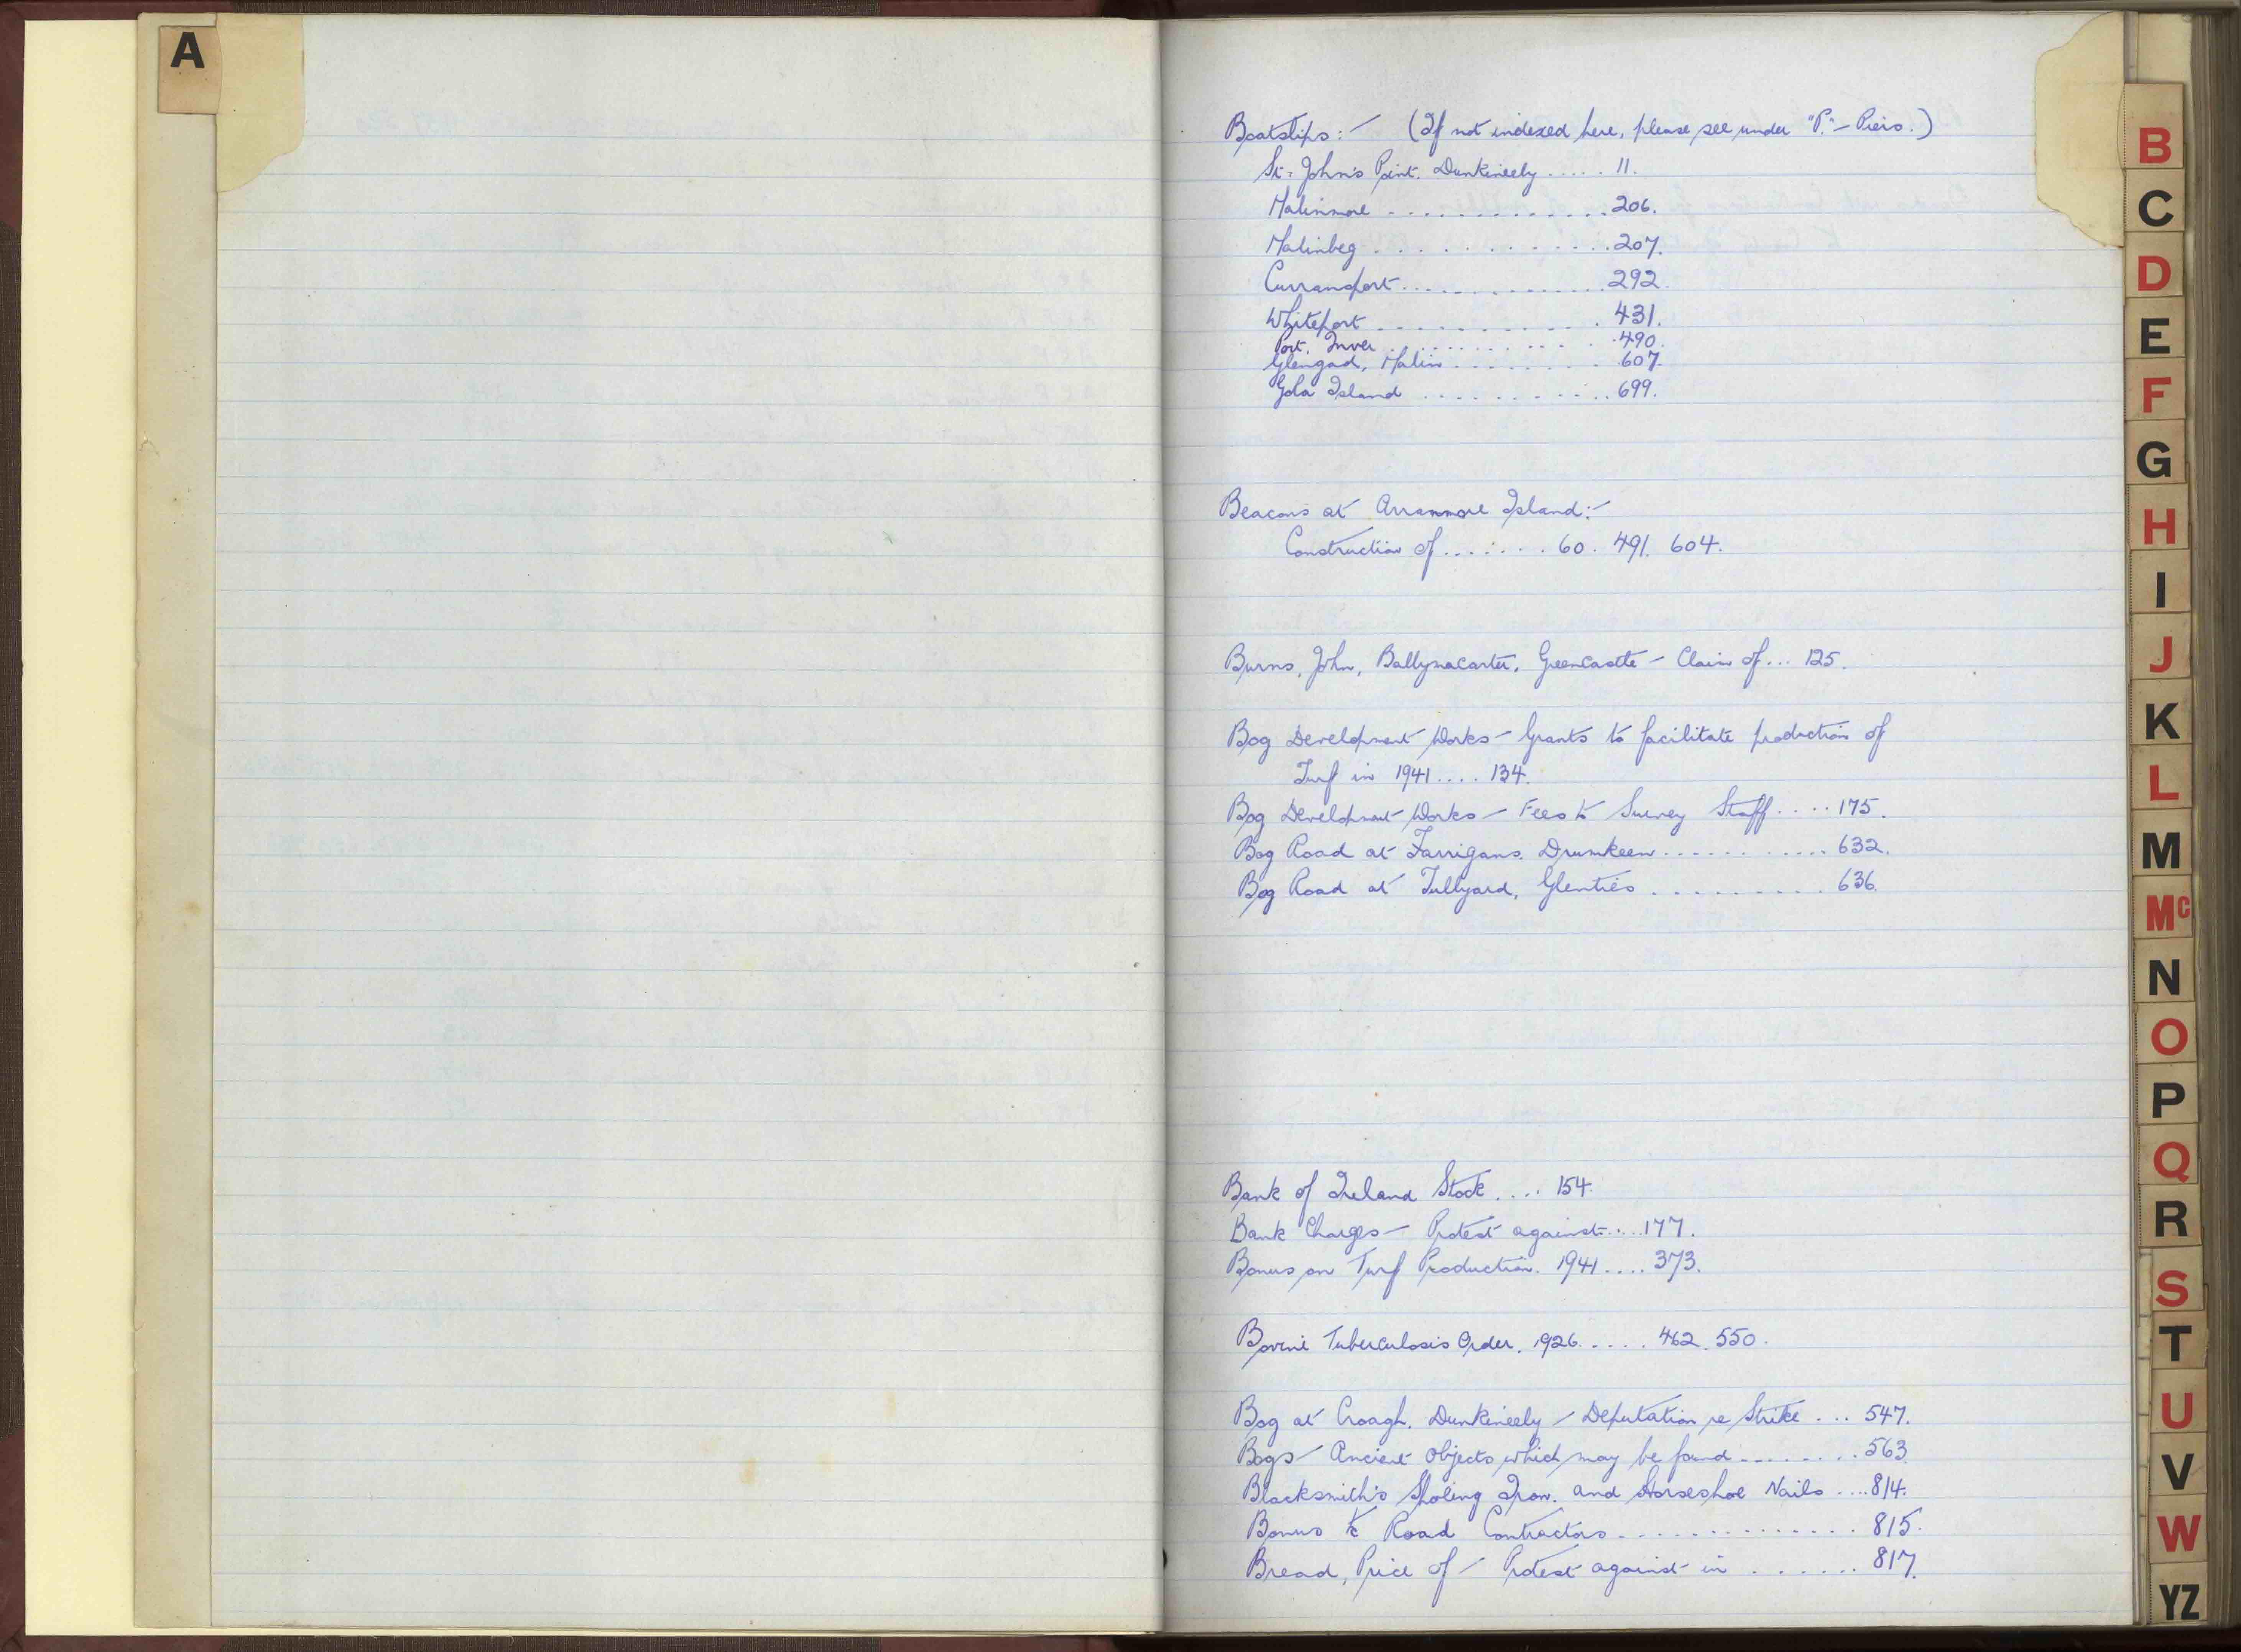 A
Boatslips:- (If not indexed here, please see under "P." - Piers.)
St. John's Point. Dunkineely ..... 11.
Malinmore ............. 206.
Malinbeg ............. 207.
Curransport .............. 292.
Whiteport ............ 431.
Port. Inver ............ 490.
Glengad, Malin ......... 607.
Gola Island ........... 699.
Beacons at Arranmore Island:-
Construction of ....... 60. 491. 604.
Burns, John, Ballymacarter, Greencastle - Claim of ... 125.
Bog Development Works - Grants to facilitate production of
Turf in 1941 .... 134.
Bog Development Works - Fees to Survey Staff .... 175.
Bog Road at Farrigans. Drumkeen ............ 632.
Bog Road at Tullyard, Glenties .......... 636.
Bank of Ireland Stock .... 154.
Bank Charges - Protest against ..... 177.
Bonus on Turf Production. 1941 .... 373.
Bovine Tuberculosis Order. 1926 ..... 462. 550.
Bog at Croagh. Dunkineely - Deputation re Strike ... 547.
Bogs - Ancient Objects which may be found ........ 563.
Blacksmith's Shoeing Iron. and Horseshoe Nails .... 814.
Bonus to Road Contractors .............. 815.
Bread, Price of - Protest against in ....... 817.
B
C
D
E
F
G
H
I
J
K
L
M
Mc
N
O
P
Q
R
S
T
U
V
W
YZ